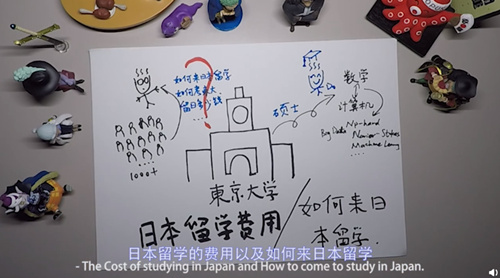 如何来日本留学
?
硕士
数学
计算机
Big Data
Np-hard
Navier-Stokes
....
1000+
東京大学
日本留学费用
/
如何来日
本留学.
日本留学的费用以及如何来日本留学
- The Cost of studying in Japan and How to come to study in Japan.